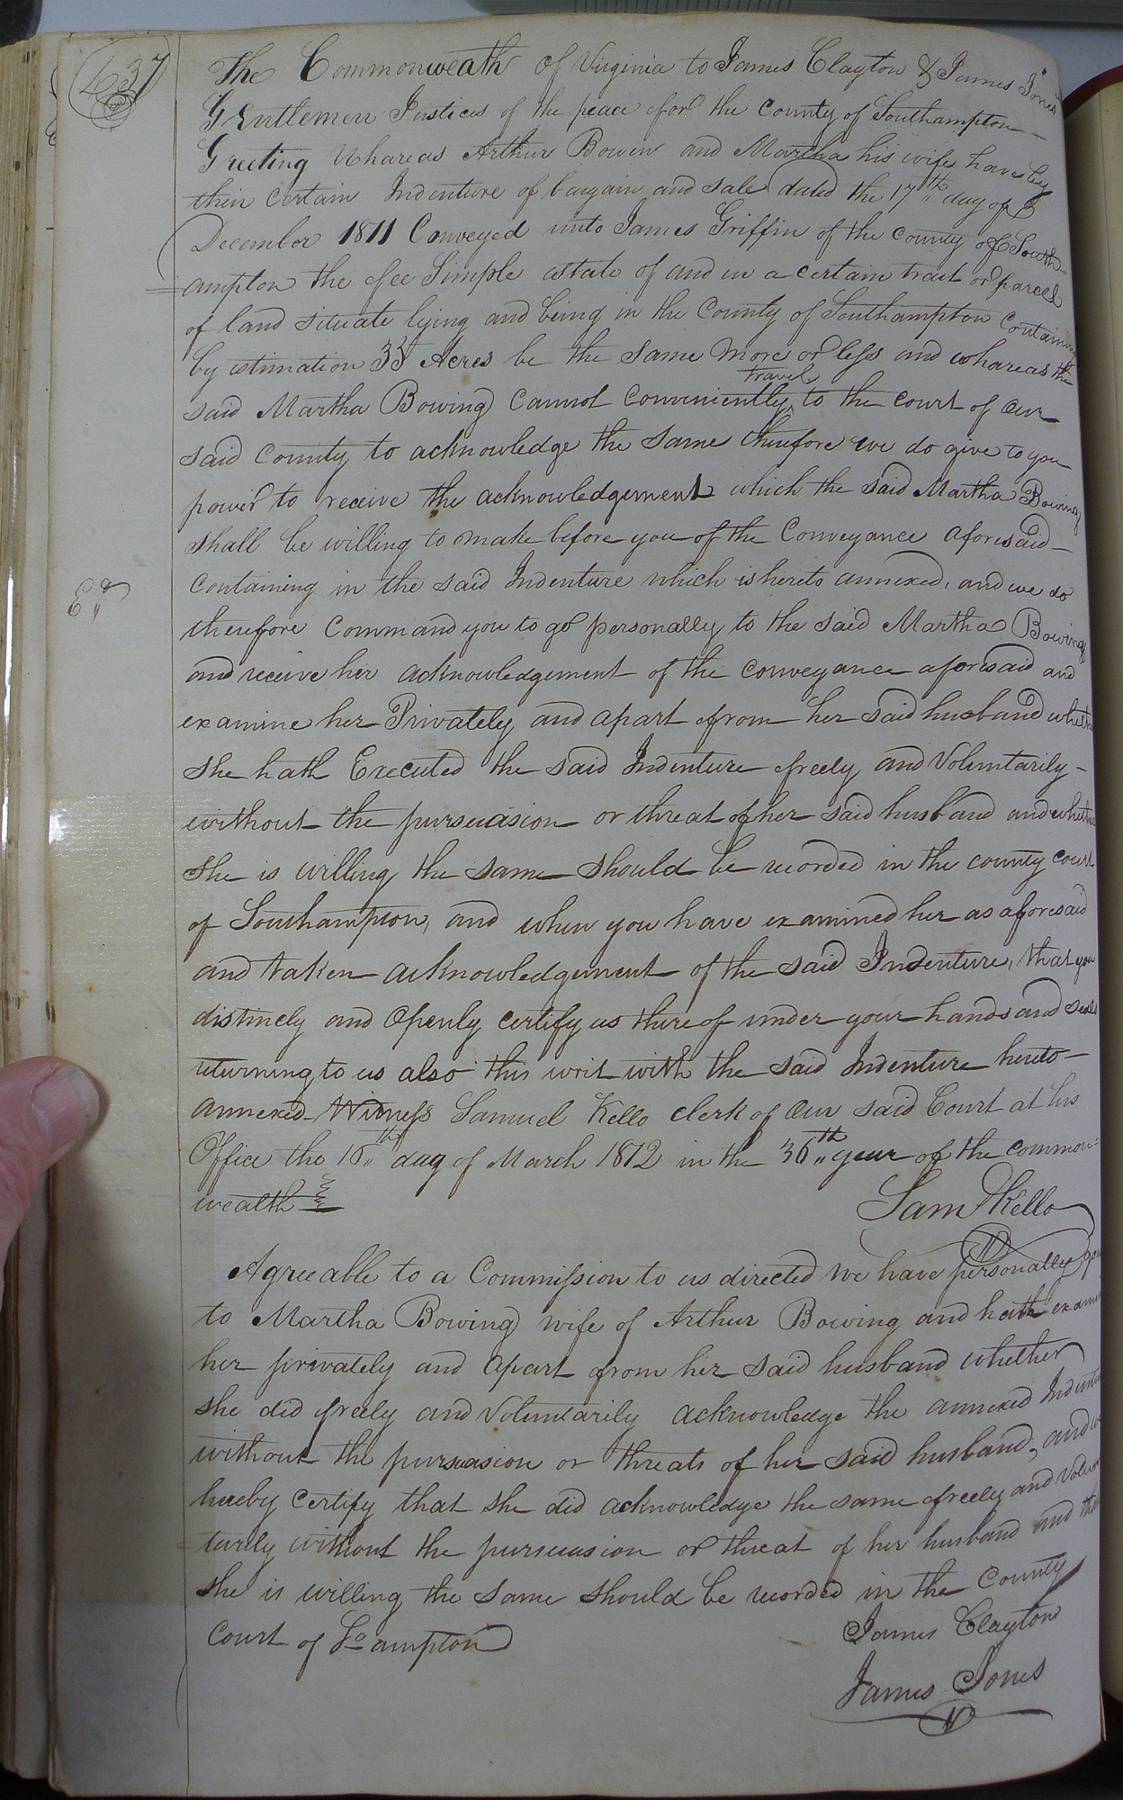 437
The Commonweath of Virginia to James Clayton & James Jones
Gentlemen Justices of the peace for the County of Southampton
Greeting Whareas Arthur Bowin and Martha his wife have by
thin certain Indenture of bargain and sale dated the 17th day of
December 1811 Conveyed unto James Griffin of the county of South-
ampton the fee Simple estate of and in a certain tract or parcel
of land situate lying and being in the County of Southampton Containing
by estimation 33 Acres be the same more or less and whareas the
said Martha Bowing cannot conveniently travel to the court of our
said county to acknowledge the same therefore we do give to you
power to receive the acknowledgement which the said Martha Bowing
shall be willing to make before you of the Conveyance aforesaid
containing in the said Indenture which is hereto annexed, and we do
therefore command you to go personally to the said Martha Bowing
and receive her acknowledgement of the conveyance aforesaid and
examine her Privately and apart from her said husband whether
she hath Executed the said Indenture freely and Voluntarily
without the pursuasion or threat of her said husband and whether
she is willing the same should be recorded in the county court
of Southampton, and when you have examined her as aforesaid
and taken acknowledgement of the said Indenture, that you
distincly and Openly certify us there of under your hands and seals
returning to us also this writ with the said Indenture hereto
annexed Witness Samuel Kello clerk of our said Court at his
Office the 16th day of March 1812 in the 36th year of the common=
wealth
Saml Kello
Agreeable to a Commission to us directed we have personally
to Martha Bowing wife of Arthur Bowing and hath
her privately and apart from her said husband whether
she did freely and Voluntarily acknowledge the annexed
without the pursuasion or threats of her said husband, and
hereby certify that she did acknowledge the same freely and Volun
tarily without the pursuasion or threat of her husband and that
she is willing the same should be recorded in the County
Court of So ampton
James Clayton
James Jones